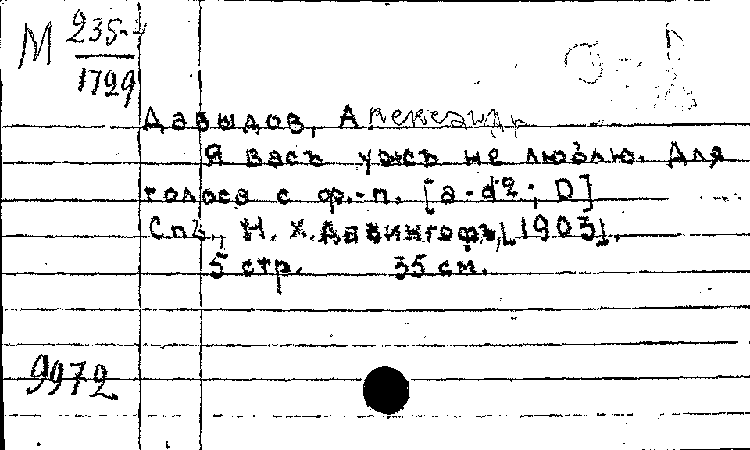 М 235-4
1729
Давыдов, Александр
Я васъ ужъ не люблю. Для
голоса с ф.-п. [a-d²; D]
Спб., Н. Х. Давингофъ, [1903].
5 стр. 35 см.
9972